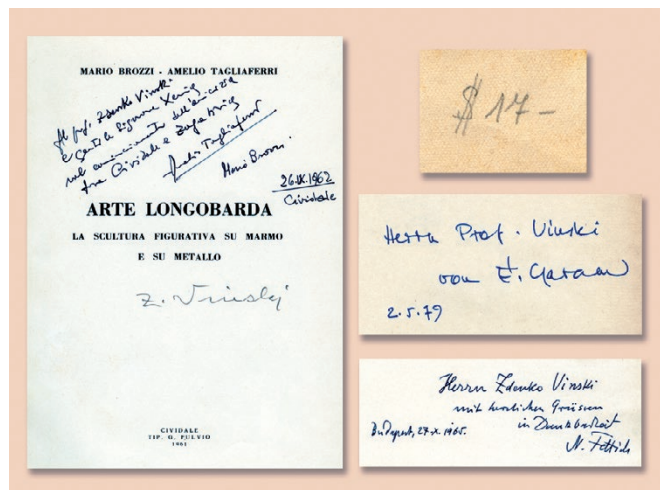 MARIO BROZZI - AMELIO TAGLIAFERRI
Al prof. Zdenko Vinski
e gentile Signora Xenia
nel cominciamento dell'amicizia
tra Cividale e Zagabria
Amelio Tagliaferri
Mario Brozzi
26.IX.1962
Cividale
ARTE LONGOBARDA
LA SCULTURA FIGURATIVA SU MARMO
E SU METALLO
Z. Vinski
CIVIDALE
TIP. G. FULVIO
$ 17-
Herrn Prof. Vinski
von É. Garam
2.5.79
Herrn Zdenko Vinski
mit herzlichen Grüssen
in Dankbarkeit
Budapest, 27.X.1965.
N. Fettich